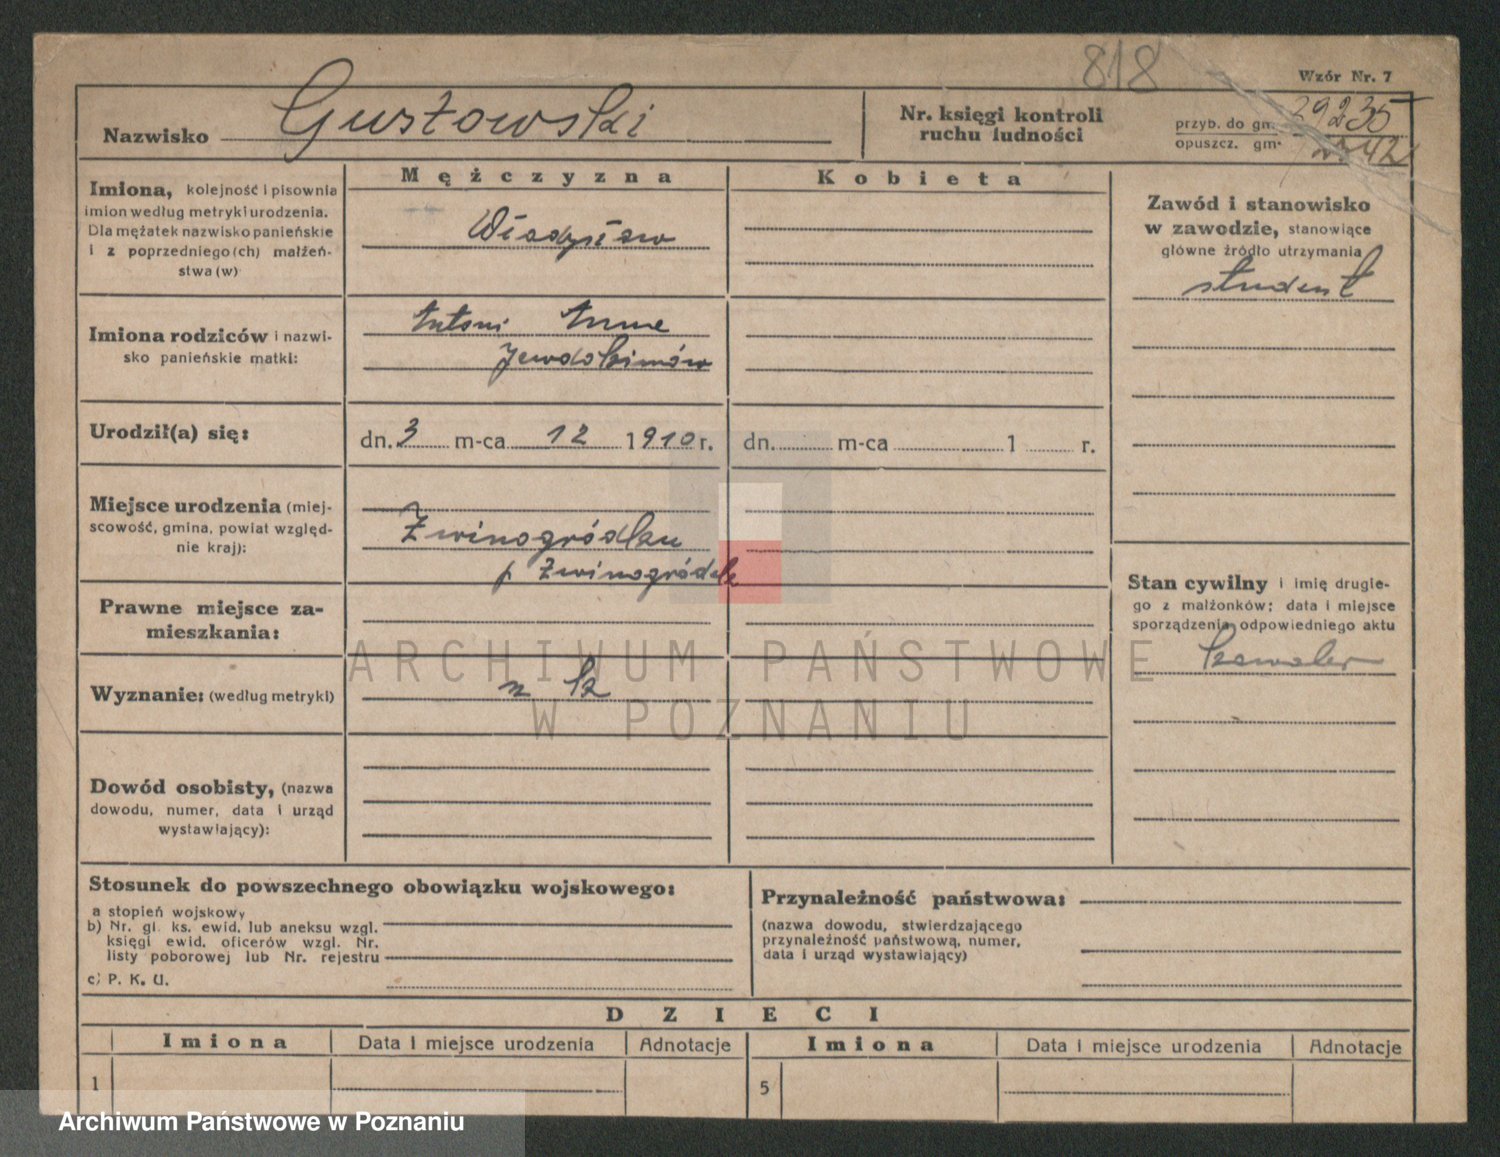 818
Wzór Nr. 7
Nazwisko Gustowski
Nr. księgi kontroli
ruchu ludności
przyb. do gm. 29235
opuszcz. gm.
Imiona, kolejność i pisownia
imion według metryki urodzenia.
Dla mężatek nazwisko panieńskie
i z poprzedniego(ch) małżeń-
stwa(w)
Mężczyzna
Kobieta
Władysław
Zawód i stanowisko
w zawodzie, stanowiące
główne źródło utrzymania
student
Imiona rodziców i nazwi-
sko panieńskie matki:
Antoni Anna
Jewdokimów
Urodził(a) się:
dn. 3 m-ca 12 1910 r.
dn. m-ca 1 r.
Miejsce urodzenia (miej-
scowość, gmina, powiat względ-
nie kraj):
Zwinogródka
p. Zwinogródek
Stan cywilny i imię drugie-
go z małżonków; data i miejsce
sporządzenia odpowiedniego aktu
kawaler
Prawne miejsce za-
mieszkania:
Wyznanie: (według metryki)
rz k
Dowód osobisty, (nazwa
dowodu, numer, data i urząd
wystawiający):
Stosunek do powszechnego obowiązku wojskowego:
a stopień wojskowy
b) Nr. gł ks. ewid. lub aneksu wzgl.
księgi ewid. oficerów wzgl. Nr.
listy poborowej lub Nr. rejestru
c) P. K. U.
Przynależność państwowa:
(nazwa dowodu, stwierdzającego
przynależność państwową, numer,
data i urząd wystawiający)
DZIECI
Imiona Data i miejsce urodzenia Adnotacje
Imiona Data i miejsce urodzenia Adnotacje
1
5
ARCHIWUM PAŃSTWOWE
W POZNANIU
Archiwum Państwowe w Poznaniu